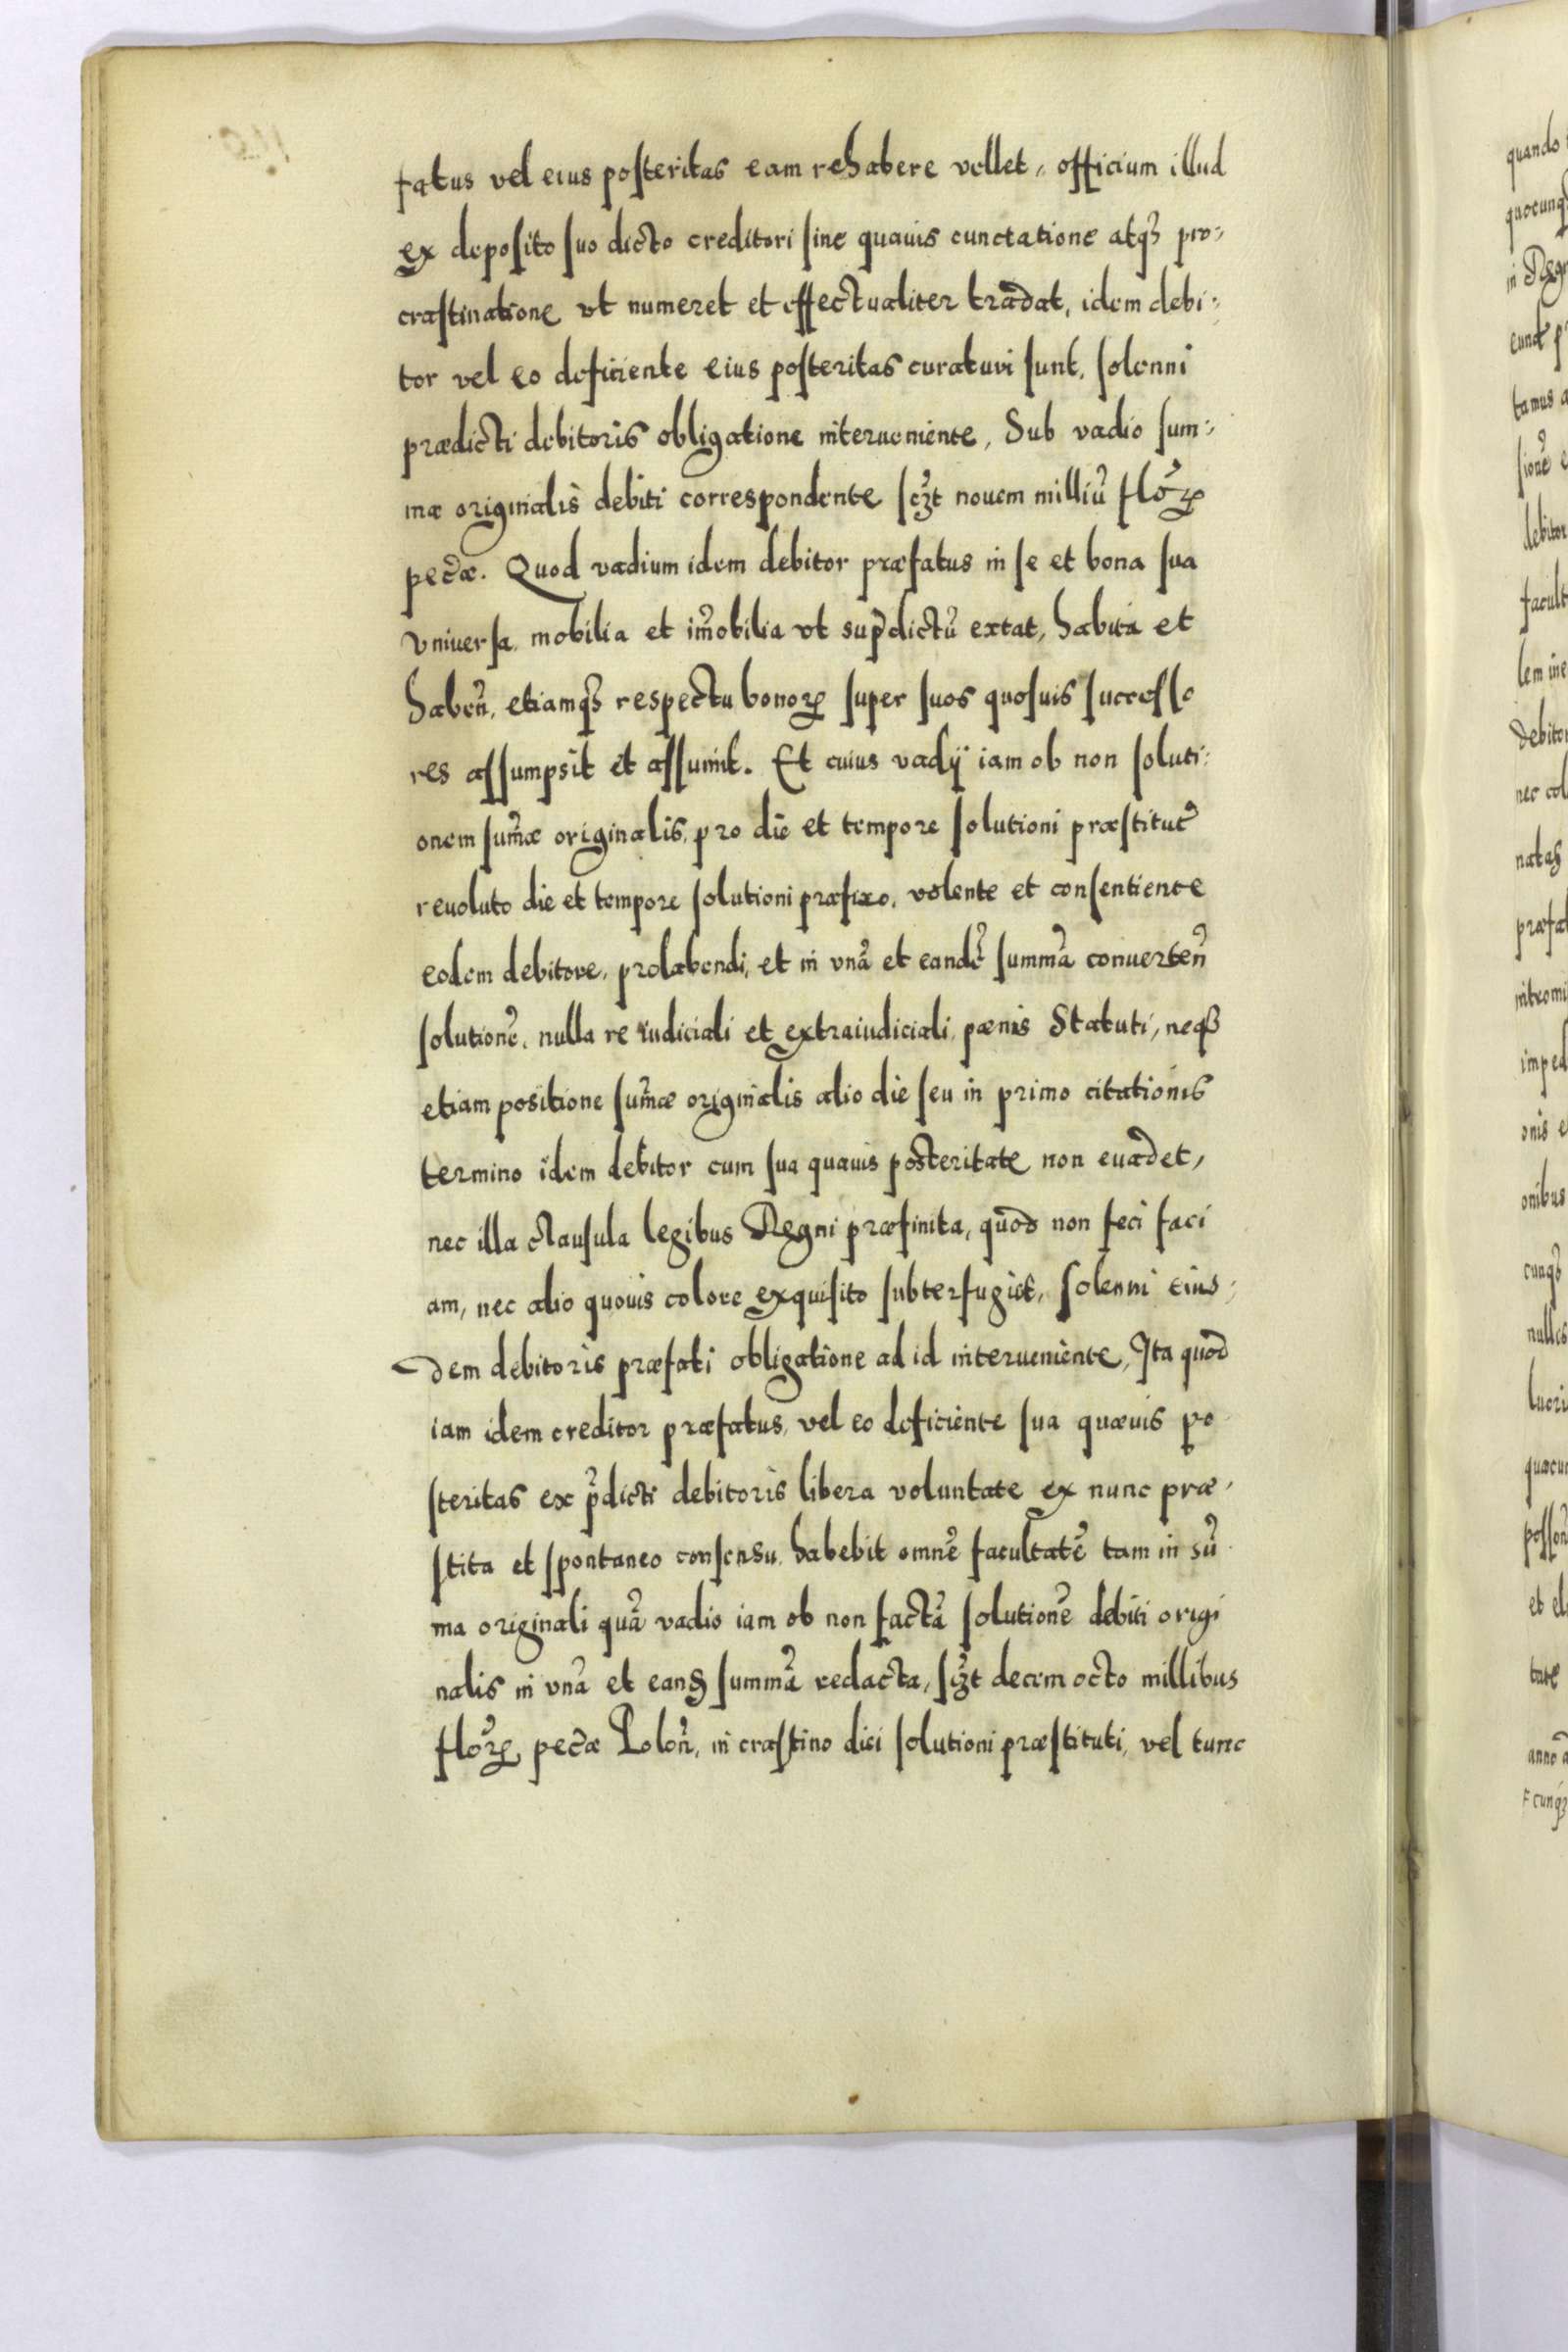 fatus vel eius posteritas eam rehabere vellet, officium illud
ex deposito suo dicto creditori sine quauis cunctatione atqȝ pro-
crastinatione vt numeret et effectualiter tradat, idem debi-
tor vel eo deficiente eius posteritas curaturi sunt, solenni
prædicti debitoris obligatione interueniente, Sub vadio sum-
mæ originalis debiti correspondente sczt nouem milliũ floꝝ
pecæ. Quod vadium idem debitor præfatus in se et bona sua
vniuersa, mobilia et im̃obilia vt supdictũ extat, habita et
haben̄, etiamqȝ respectu bonoꝝ super suos quosuis successo
res assumpsit et assumit. Et cuius vadÿ iam ob non soluti-
onem sum̃æ originalis, pro die et tempore solutioni præstitut̃
reuoluto die et tempore solutioni præfixo, volente et consentiente
eodem debitore, prolabendi, et in vnã et eandẽ summã conuerten̄
solutionẽ, nulla re iudiciali et extraiudiciali, pænis Statuti, neqȝ
etiam positione sum̃æ originalis alio die seu in primo citationis
termino idem debitor cum sua quauis posteritate non euadet,
nec illa clausula legibus Regni præfinita, quod non feci faci
am, nec alio quouis colore exquisito subterfugiet, solenni eius-
dem debitoris præfati obligatione ad id interueniente, Ita quod
iam idem creditor præfatus, vel eo deficiente sua quæuis po
steritas ex p̃dicti debitoris libera voluntate ex nunc præ-
stita et spontaneo consensu, habebit omnẽ facultatẽ tam in sũ
ma originali quã vadio iam ob non factã solutionẽ debiti origi
nalis in vnã et eand summã redacta, sczt decem octo millibus
floꝝ pecæ Polon̄, in crastino diei solutioni præstituti, vel tunc